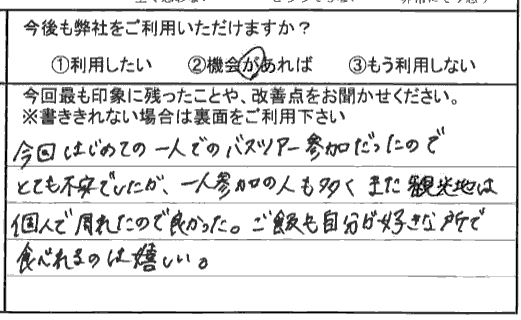 今後も弊社をご利用いただけますか？
①利用したい　②機会があれば　③もう利用しない
今回最も印象に残ったことや、改善点をお聞かせください。
※書ききれない場合は裏面をご利用下さい
今回はじめての一人でのバスツアー参加だったので
とても不安でしたが、一人参加の人も多く また観光地は
個人で周れたので良かった。ご飯も自分が好きな所で
食べれるのは嬉しい。